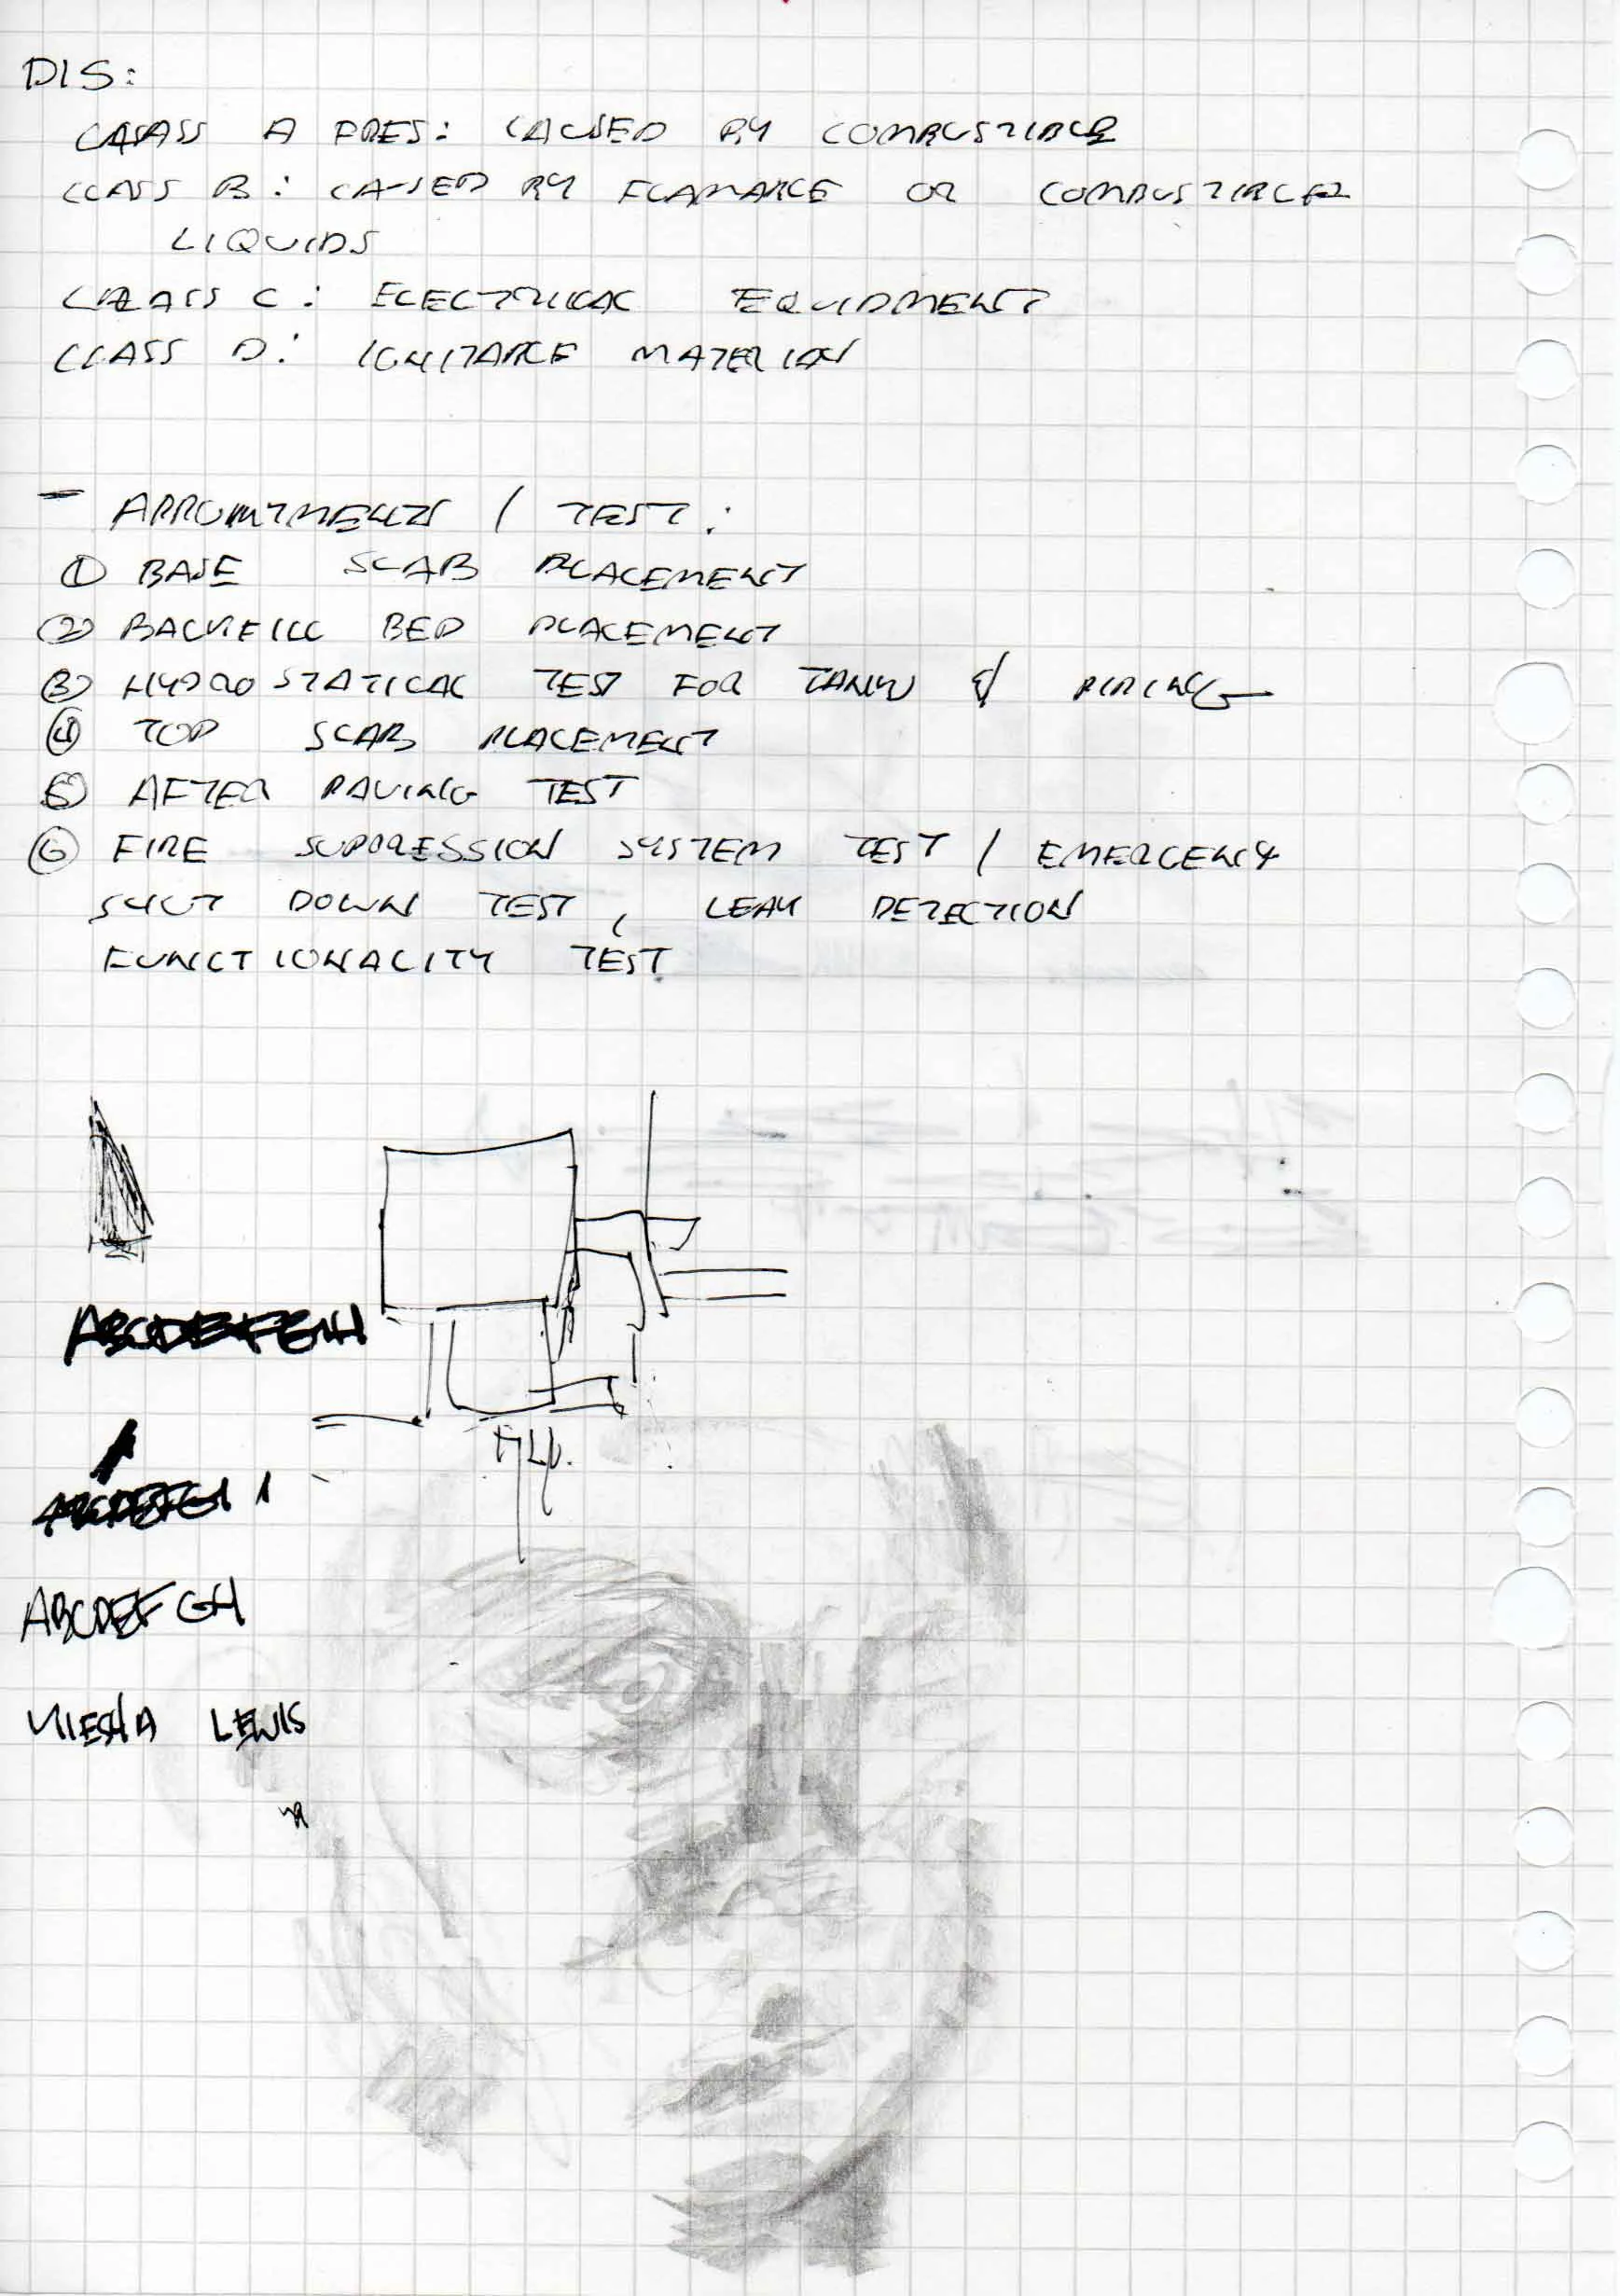 DIS:
CLASS A FIRES: CAUSED BY COMBUSTIBLE
CLASS B: CAUSED BY FLAMABLE OR COMBUSTIBLES
LIQUIDS
CLASS C: ELECTRICAL EQUIPMENT
CLASS D: IGNITABLE MATERIAL
- APPOINTMENTS / TEST:
① BASE SLAB PLACEMENT
② BACKFILL BED PLACEMENT
③ HYDROSTATICAL TEST FOR TANK & PIPING
④ TOP SLAB PLACEMENT
⑤ AFTER PAVING TEST
⑥ FIRE SUPPRESSION SYSTEM TEST / EMERGENCY
SHUT DOWN TEST, LEAK DETECTION
FUNCTIONALITY TEST
ABCDEFGH
ABCDEFGH
ABCDEFGH
KIESHA LEWIS